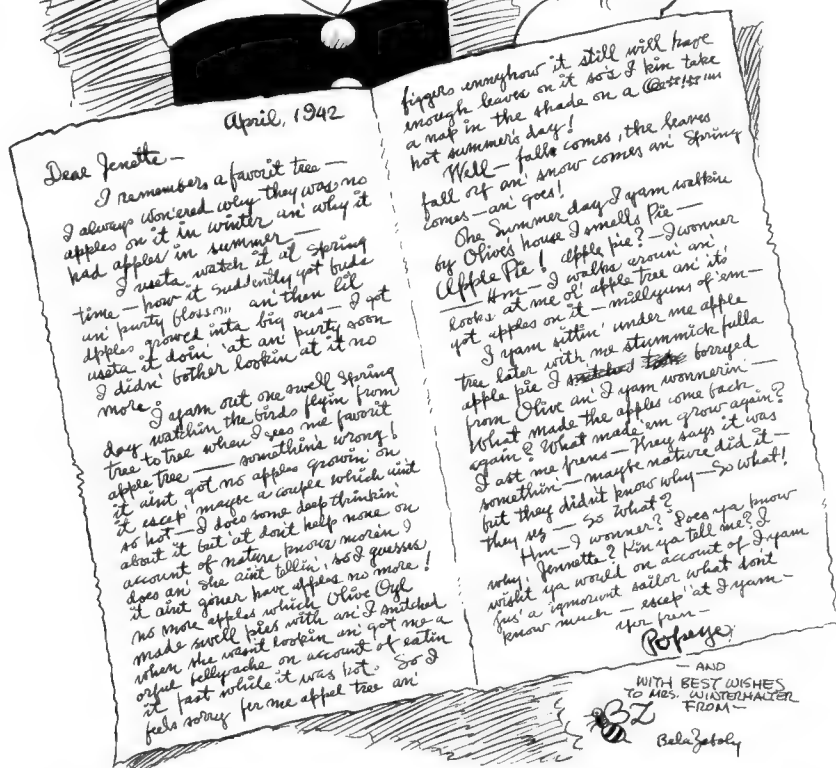 April, 1942
Dear Jenette—
I remembers a favorit tree—
I always won'ered why they was no
apples on it in winter an' why it
had apples in summer—
I useta watch it at spring
time — how it suddinly got buds
an' purty blossoms an' then lil
apples growed inta big ones — I got
useta it doin' 'at an' purty soon
I didn' bother lookin at it no
more.
I yam out one swell spring
day watchin the birds flyin from
tree to tree when I sees me favorit
apple tree — somethin's wrong!
it aint got no apples growin' on
it escep' maybe a couple which aint
so hot — I does some deep thinkin'
about it but 'at don't help none on
account of nature knows more'n I
does an' she aint tellin', so I guesses
it aint goner have apples no more!
no more apples which Olive Oyl
made swell pies with an' I snitched
when she wasn't lookin an' got me a
orful bellyache on account of eatin
it fast while it was hot. So I
feels sorry fer me appel tree an'
figgers ennyhow it still will have
enough leaves on it so's I kin take
a nap in the shade on a @**!**!!!
hot summer's day!
Well — falls comes, the leaves
fall off an' snow comes an' Spring
comes — an' goes!
One Summer day I yam walkin
by Olive's house I smells Pie—
Apple Pie! apple pie? — I wonner
— Hm — I walks aroun' an'
looks at me ol' apple tree an' its
got apples on it — millyuns of 'em—
I yam sittin' under me apple
tree later with me stummick fulla
apple pie I snitched borryed
from Olive an' I yam wonnerin'—
What made the apples come back
again? What made 'em grow again?
I ast me frens — they says it was
somethin' — maybe nature did it—
but they didn't know why — So what!
they sez — So What?
Hm — I wonner? Does ya know
why, Jennette? Kin ya tell me? I
wisht ya would on account of I yam
jus' a ignorunt sailor what don't
know much — escep' 'at I yam—
yer fren—
Popeye.
— AND
WITH BEST WISHES
TO MRS. WINTERHALTER
FROM—
BZ
Bela Zaboly